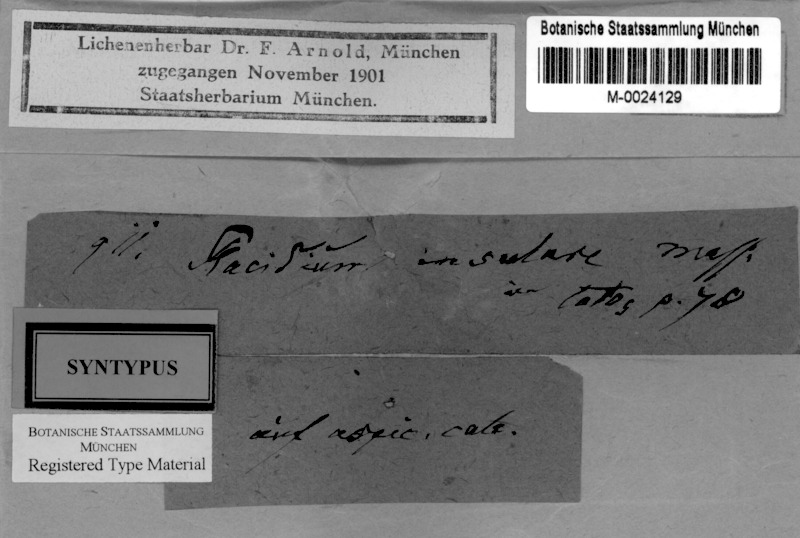 Lichenenherbar Dr. F. Arnold, München
zugegangen November 1901
Staatsherbarium München.
Botanische Staatssammlung München
M-0024129
Placidium insulare Mass.
in p. 78
SYNTYPUS
BOTANISCHE STAATSSAMMLUNG
MÜNCHEN
Registered Type Material
auf aspic. calc.